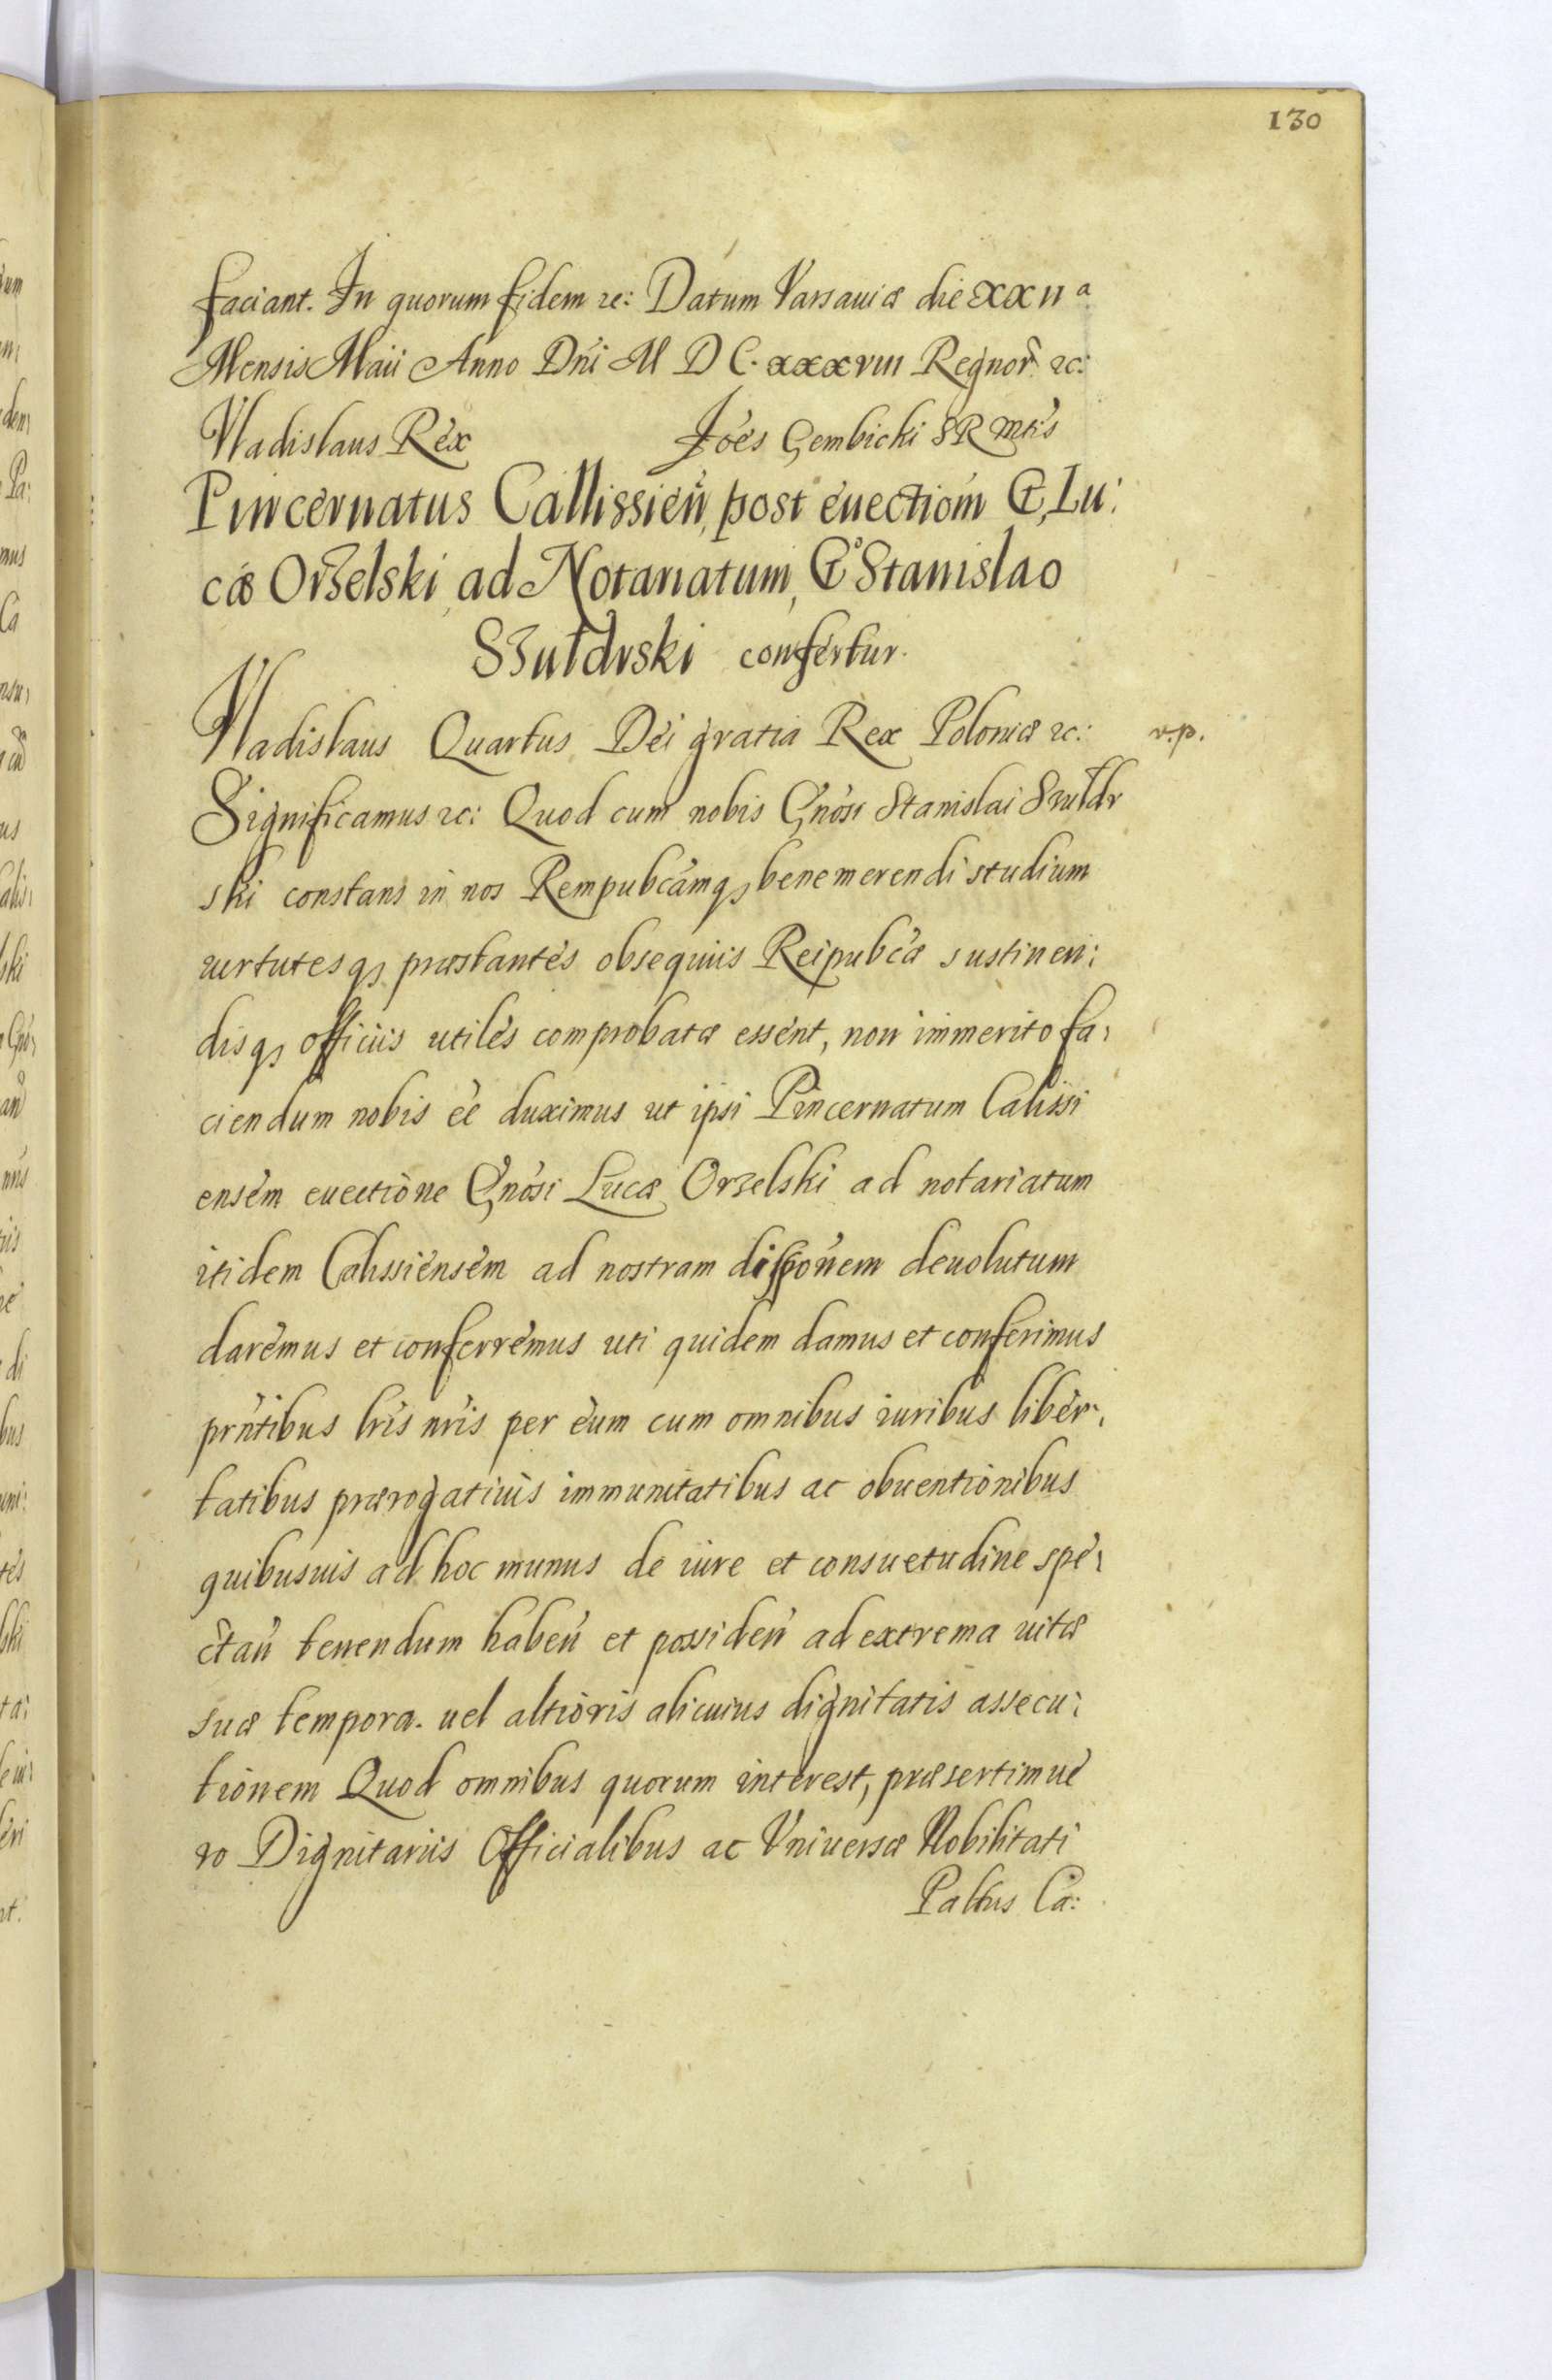 130
faciant. In quorum fidem ꝛc: Datum Varsauiæ die XXII a
Mensis Maii Anno Dni M D C. XXXVIII Regnor ꝛc:
Vladislaus Rex Joes Gembicki S R Mtis
Pincernatus Callissien, post euectiom G, Lu:
cæ Orzelski, ad Notariatum, Go Stanislao
Szułdrski confertur.
Vladislaus Quartus Dei gratia Rex Poloniæ ꝛc: v.p.
Significamus ꝛc: Quod cum nobis Gnosi Stanislai Szułdr
ski constans in nos Rempubcamqꝫ benemerendi studium
uirtutesqꝫ præstantes obsequiis Reipubcæ sustinen:
disqꝫ officiis utiles comprobatæ essent, non immerito fa:
ciendum nobis ee duximus ut ipsi Pincernatum Calissi
ensem euectione Gnosi Lucæ Orzelski ad notariatum
itidem Calissiensem ad nostram disponem deuolutum
daremus et conferremus uti quidem damus et conferimus
prntibus lris nris per eum cum omnibus iuribus liber:
tatibus prærogatiuis immunitatibus ac obuentionibus
quibusuis ad hoc munus de iure et consuetudine spe:
ctan tenendum haben et possiden ad extrema uitæ
suæ tempora. uel altioris alicuius dignitatis assecu:
tionem Quod omnibus quorum interest, præsertim ue
ro Dignitariis Officialibus ac Vniuersæ Nobilitati
Paltus Ca: